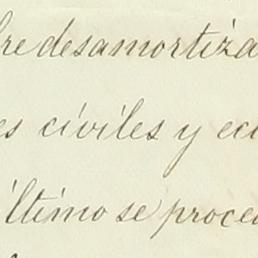 bre desamortiza
es civiles y ecl
último se proced